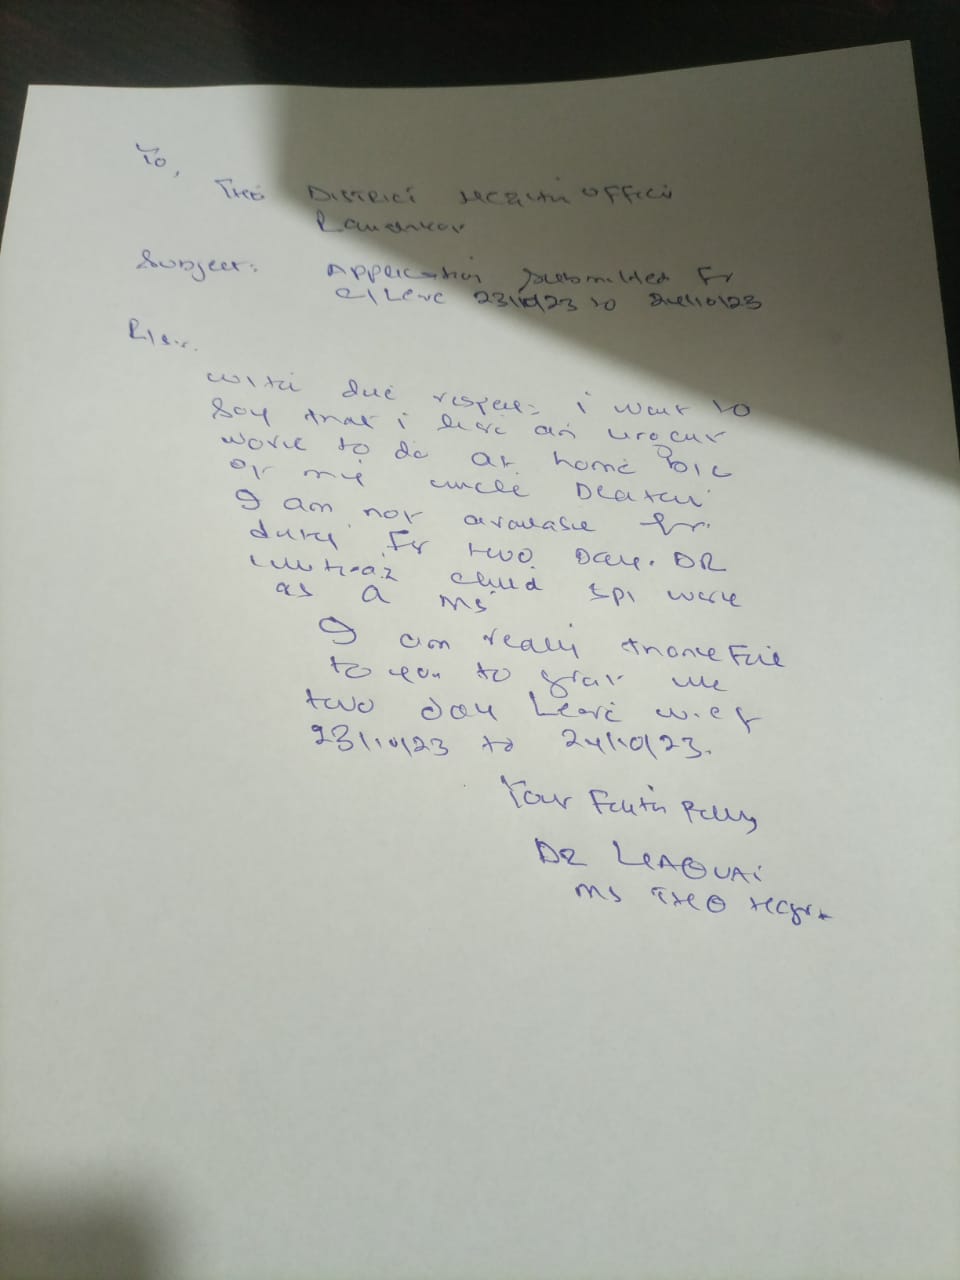 To,
The District Health Officer
Rawalakot
Subject: Application submitted For
c/Leave 23/10/23 to 24/10/23
R/Sir.
With due respect i want to
Say that i have an urgent
work to do at home b/c
of my uncle Death
I am not available for
duty For two Day. DR
child spt work
as a MS
I am really thankful
to you to grant me
two day Leave w.e.f
23/10/23 to 24/10/23.
Your Faithfully
DR LIAQUAT
MS THQ